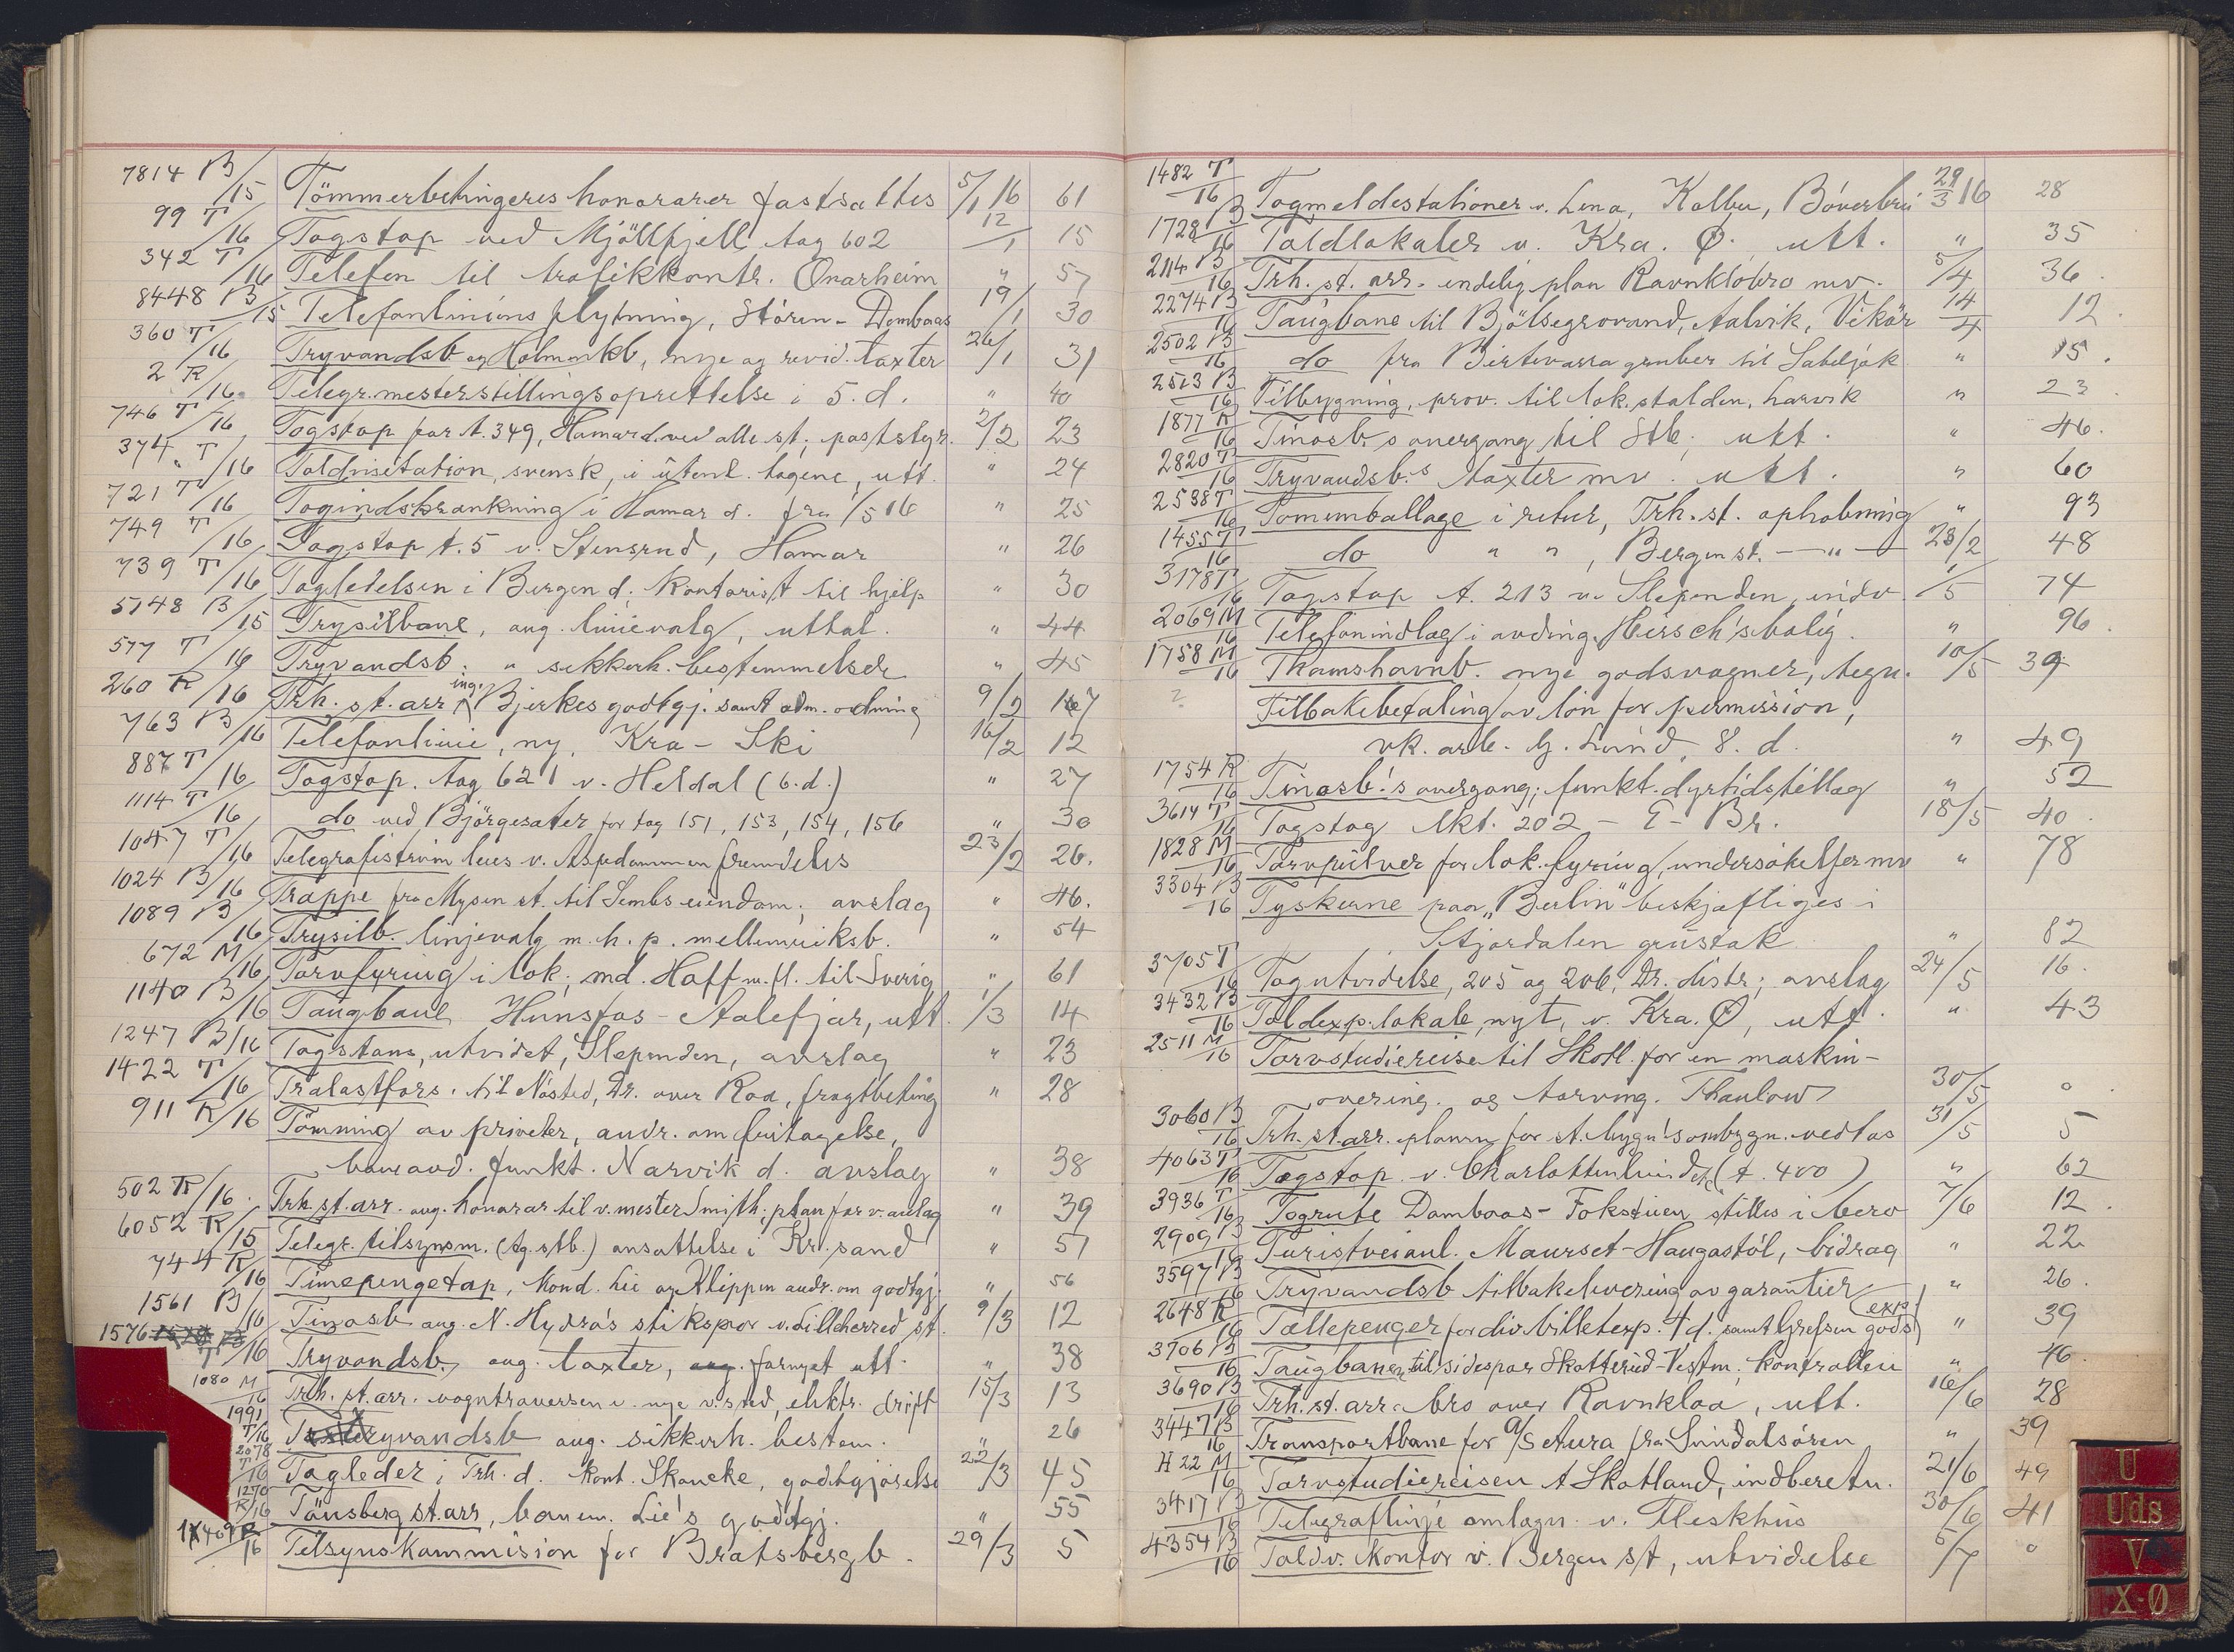 7814 B/15 Tömmerbetingeres honorarer fastsættes 5/1 16 61
99 T/16 Togstop ved Mjölfjell tog 602 12/1 15
342 T/16 Telefon til trafikkontr. Onarheim " 57
8448 B/15 Telefonliniens flytning, Stören - Dombaas 19/1 30
360 T/16 Tryvandsb og Holmenkb, nye og revid. taxter 26/1 31
2 R/16 Telegr.mesterstillings oprettelse i 5. d. " 40
746 T/16 Togstop for t. 349, Hamar d. ved alle st; 2/2 23
374 T/16 Toldvisitation, svensk, i utenl. togene, utt. " 24
721 T/16 Togindskrænkning i Hamar d. fra 1/5 16 " 25
749 T/16 Togstop t. 5 v. Stensrud, Hamar " 26
739 T/16 Togledelsen i Bergen d. Kontorist til hjelp " 30
5148 B/15 Trysilbane, ang. linievalg, uttal. " 44
577 T/16 Tryvandsb. " sikkerh. bestemmelser " 45
260 R/16 Trh. st. arr. ing. Bjerkes godtgj. samt adm. ordning 9/2 167
763 B/16 Telefonlinie, ny, Kra - Ski 16/2 12
887 T/16 Togstop. tog 621 v. Heldal (6. d.) " 27
1114 T/16 do ved Björgesæter for tog 151, 153, 154, 156 " 30
1047 T/16 Telegrafiström leies v. Aspedammen fremdeles 23/2 26.
1024 B/16 Trappe fra Mysen st. til Sembs eiendom; avslag " 46.
1089 B/16 Trysilb. linjevalg m. h. p. mellemriksb. " 54
672 M/16 Torvfyring i lok; md. Hoff m. fl. til Sverig " 61
1140 B/16 Taugbane Hunsfos - Aalefjær, utt. 1/3 14
1247 B/16 Togstans, utvidet, Slependen, avslag " 23
1422 T/16 Trælastfors. til Nösted, Dr. over Roa, fragtbeting " 28
911 R/16 Tömming av priveter, andr. om fritagelse,
baneavd. funkt. Narvik d. avslag " 38
502 R/16. Trh. st. arr. ang. honorar til v. mester Smith; plan for v. anlæg " 39
6052 R/15 Telegr. tilsynsm. (tg. stb.) ansættelse i Kr.sand " 51
744 R/16 Timepengetap, kond. Lie og Klippen andr. om godtgj. " 56
1561 B/16 Tinosb ang. N. Hydro's stikspor v. Lilleherred st. 9/3 12
1576 T/16 Tryvandsb, ang. taxter, ang. fornyet utt. " 38
1080 M/16 Trh. st. arr. vogntraversen v. nye v.sted, elektr. drift 15/3 13
1991 T/16 Tryvandsb ang. sikkerh. bestem. " 26
2078 T/16 Togleder i Trh. d. kont. Skancke, godtgjörelse 22/3 45
1270 R/16 Tönsberg st. arr, banem. Lie's godtgj. " 55
1409 R/16 Tilsynskommision for Bratsbergb. 29/3 5
1482 T/16 Togmeldestationer v. Lena, Kolbu, Böverbru 29/3 16 28
1728 B/16 Toldlokaler v. Kra. Ø. utt. " 35
2114 B/16 Trh. st. arr. endelig plan Ravnklobro mv. 5/4 36.
2274 B/16 Taugbane til Bjölsegrovand, Aalvik, Vikör 14/4 12.
2502 B/16 do fra Birtevarra gruber til " 15.
2513 B/16 Tilbygning, prov. til lok.stalden, Larvik " 23.
1877 R/16 Tinosb's overgang til Stb; utt. " 46.
2820 T/16 Tryvandsb.s taxter mv. utt. " 60
2538 T/16 Tomemballage i retur, Trh. st. ophobning " 93
1455 T/16 do " " , Bergen st. — " — 23/2 48
3178 T/16 Togstop t. 213 v. Slependen, indv. 1/5 74
2069 M/16 Telefonindlæg i avding. Hirsch's bolig. " 96.
1758 M/16 Thamshavnb. nye godsvogner, tegn. 10/5 39
? Tilbakebetaling av lön for permission,
vk. arb. G. Lund, 8. d. " 49
1754 R/16 Tinosb's overgang; funkt. dyrtidstillæg " 52
3614 T/16 Togstog lkt. 202 - E - Br. 18/5 40.
1828 M/16 Torvpulver for lok.fyring, undersökelser mv " 78
3304 B/16 Tyskerne paa "Berlin" beskjæftiges i
Stjördalen grustak " 82
3705 T/16 Togutvidelse, 205 og 206, Dr. distr; avslag 24/5 16.
3432 B/16 Toldexp.lokale, nyt, v. Kra. Ø, utt. " 43
2511 M/16 Torvstudiereise til Skotl. for en maskin-
overing. og torving. Thaulow 30/5 0.
3060 B/16 Trh. st. arr. planen for st. bygn's ombygn. vedtas 31/5 5
4063 T/16 Togstop. v. Charlottenlund (t. 400) " 62
3936 T/16 Togrute Dombaas - Fokstuen, stilles i bero 7/6 12.
2909 B/16 Turistveianl. Maurset - Haugastöl, bidrag " 22
3597 B/16 Tryvandsb tilbakelevering av garantier " 26.
2648 R/16 Tællepenger for div. billetexp. 4 d. samt Grefsen gods exp. " 39
3706 B/16 Taugbanen til sidespor Skotterud - Vestm; kontrollen " 46.
3690 B/16 Trh. st. arr. bro over Ravnkloa, utt. 16/6 28
3447 B/16 Transportbane for A/S Aura fra Sundalsören " 39
H 22 M/16 Torvstudiereisen t Skotland, indberetn. 21/6 49
3417 B/16 Telegraflinje omlægn. v. Fleskhus 30/6 41
4354 B/16 Toldv. kontor v. Bergen st, utvidelse 5/7 0
U
Uds
V
X-Ø